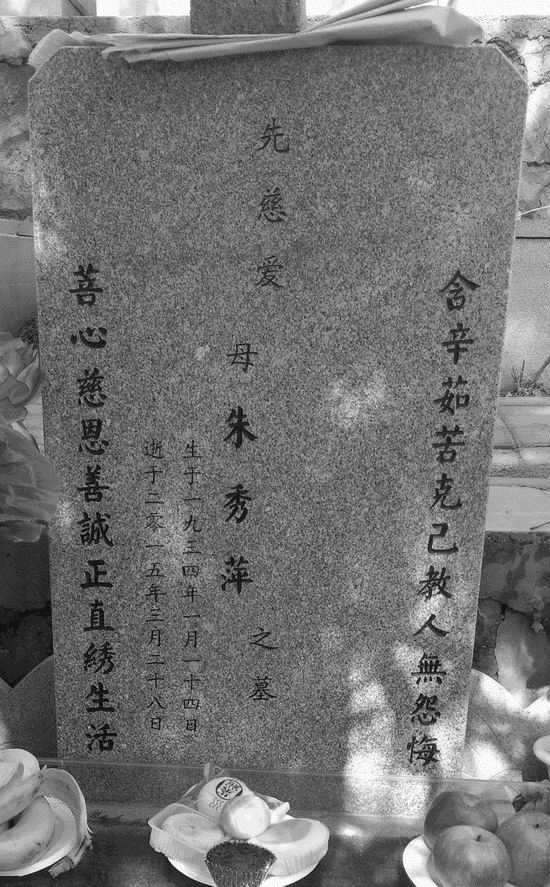 含辛茹苦克己教人無怨悔
先慈爱
母朱秀萍之墓
生于一九三四年一月一十四日
逝于二零一五年三月二十八日
菩心慈恩善誠正直绣生活